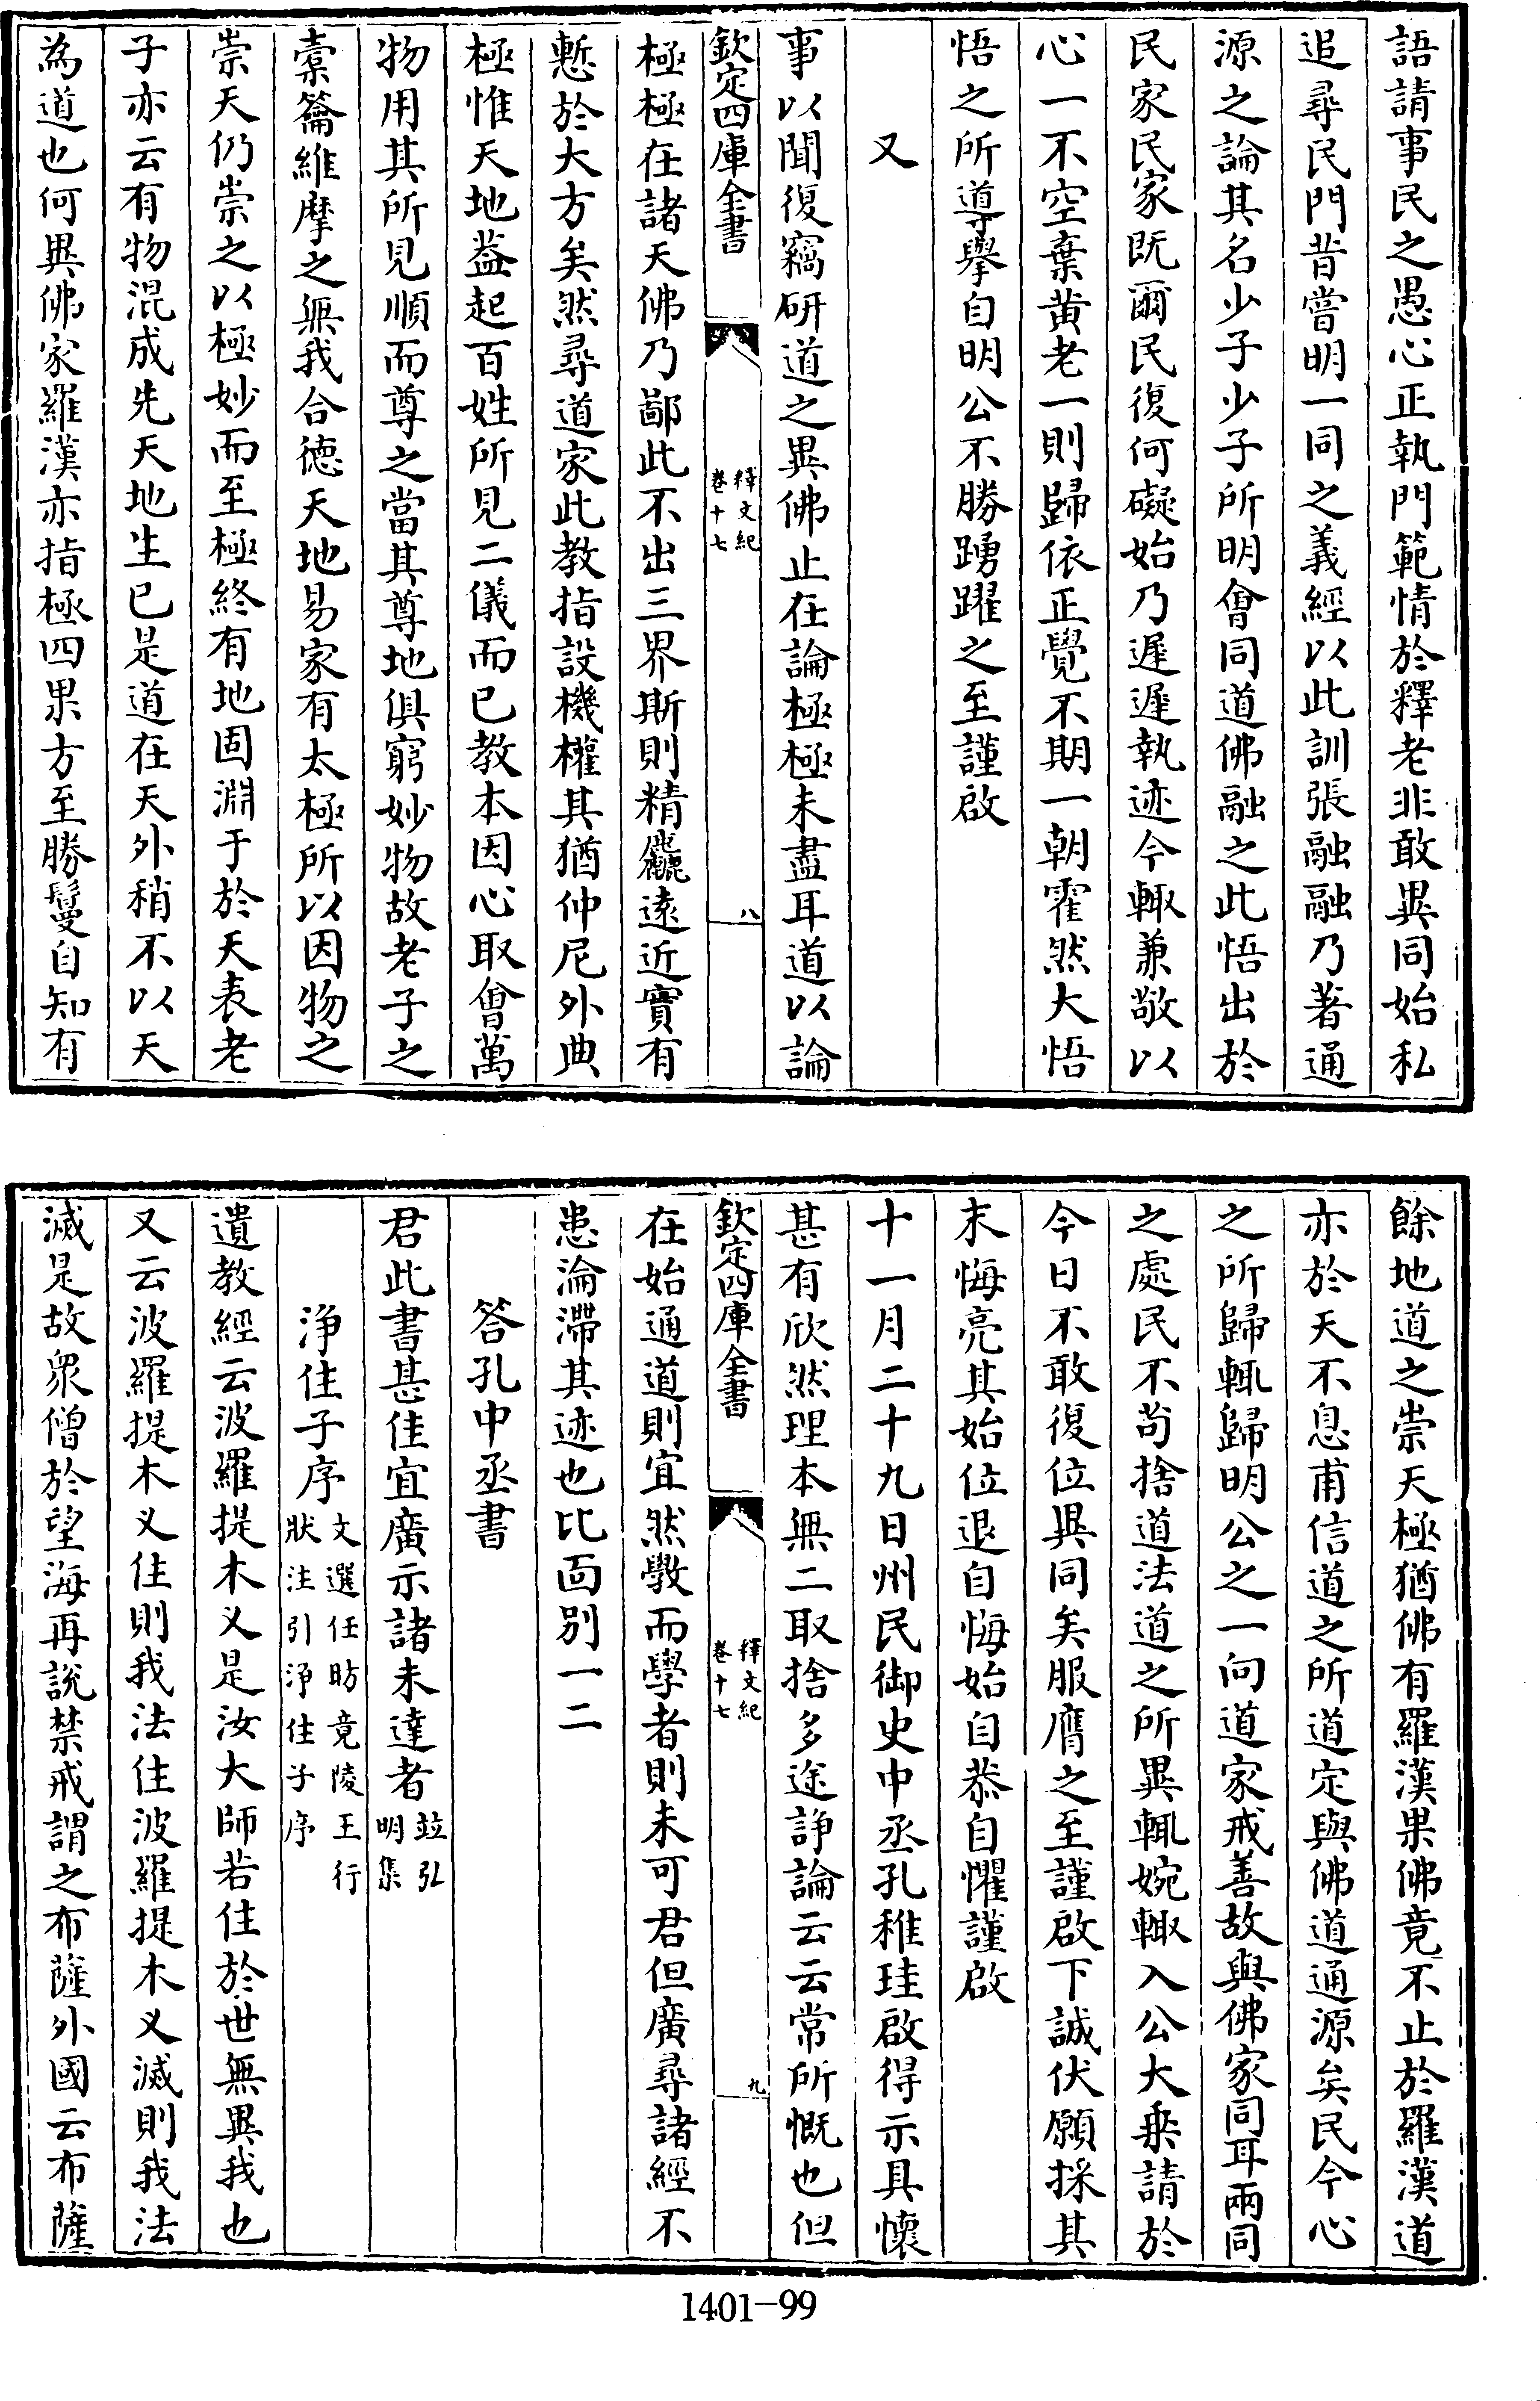 語請事民之愚心正執門範情於釋老非敢異同始私
追尋民門昔嘗明一同之義經以此訓張融融乃著通
源之論其名少子少子所明會同道佛融之此悟出於
民家民家既爾民復何礙始乃遲遲執迹今輙兼敬以
心一不空棄黄老一則歸依正覺不期一朝霍然大悟
悟之所導舉自明公不勝踴躍之至謹啟
又
事以聞復竊研道之異佛止在論極極未盡耳道以論
欽定四庫全書
釋文紀
卷十七
八
極極在諸天佛乃鄙此不出三界斯則精麤遠近實有
慙於大方矣然尋道家此教指設機權其猶仲尼外典
極惟天地葢起百姓所見二儀而已教本因心取會萬
物用其所見順而尊之當其尊地俱窮妙物故老子之
橐籥維摩之無我合德天地易家有太極所以因物之
崇天仍崇之以極妙而至極終有地固淵于於天表老
子亦云有物混成先天地生已是道在天外稍不以天
為道也何異佛家羅漢亦指極四果方至勝鬘自知有
餘地道之崇天極猶佛有羅漢果佛竟不止於羅漢道
亦於天不息甫信道之所道定與佛道通源矣民今心
之所歸輒歸明公之一向道家戒善故與佛家同耳兩同
之處民不苟捨道法道之所異輒婉輙入公大乗請於
今日不敢復位異同矣服膺之至謹啟下誠伏願採其
末悔亮其始位退自悔始自恭自懼謹啟
十一月二十九日州民御史中丞孔稚珪啟得示具懷
甚有欣然理本無二取捨多途諍論云云常所慨也但
欽定四庫全書
釋文紀
卷十七
九
在始通道則宜然斆而學者則未可君但廣尋諸經不
患淪滯其迹也比面别一二
答孔中丞書
君此書甚佳宜廣示諸未達者竝弘明集
浄住子序文選任昉竟陵王行狀注引浄住子序
遺教經云波羅提木义是汝大師若住於世無異我也
又云波羅提木义住則我法住波羅提木义滅則我法
滅是故衆僧於望海再説禁戒謂之布薩外國云布薩
1401-99